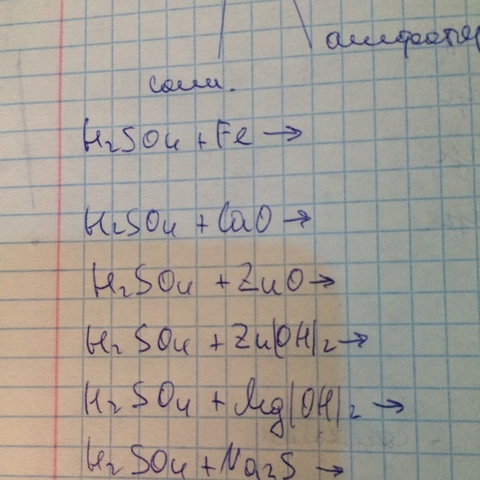 амфотер
соли.
H₂SO₄ + Fe →
H₂SO₄ + CaO →
H₂SO₄ + ZnO →
H₂SO₄ + Zn(OH)₂ →
H₂SO₄ + Mg(OH)₂ →
H₂SO₄ + Na₂S →